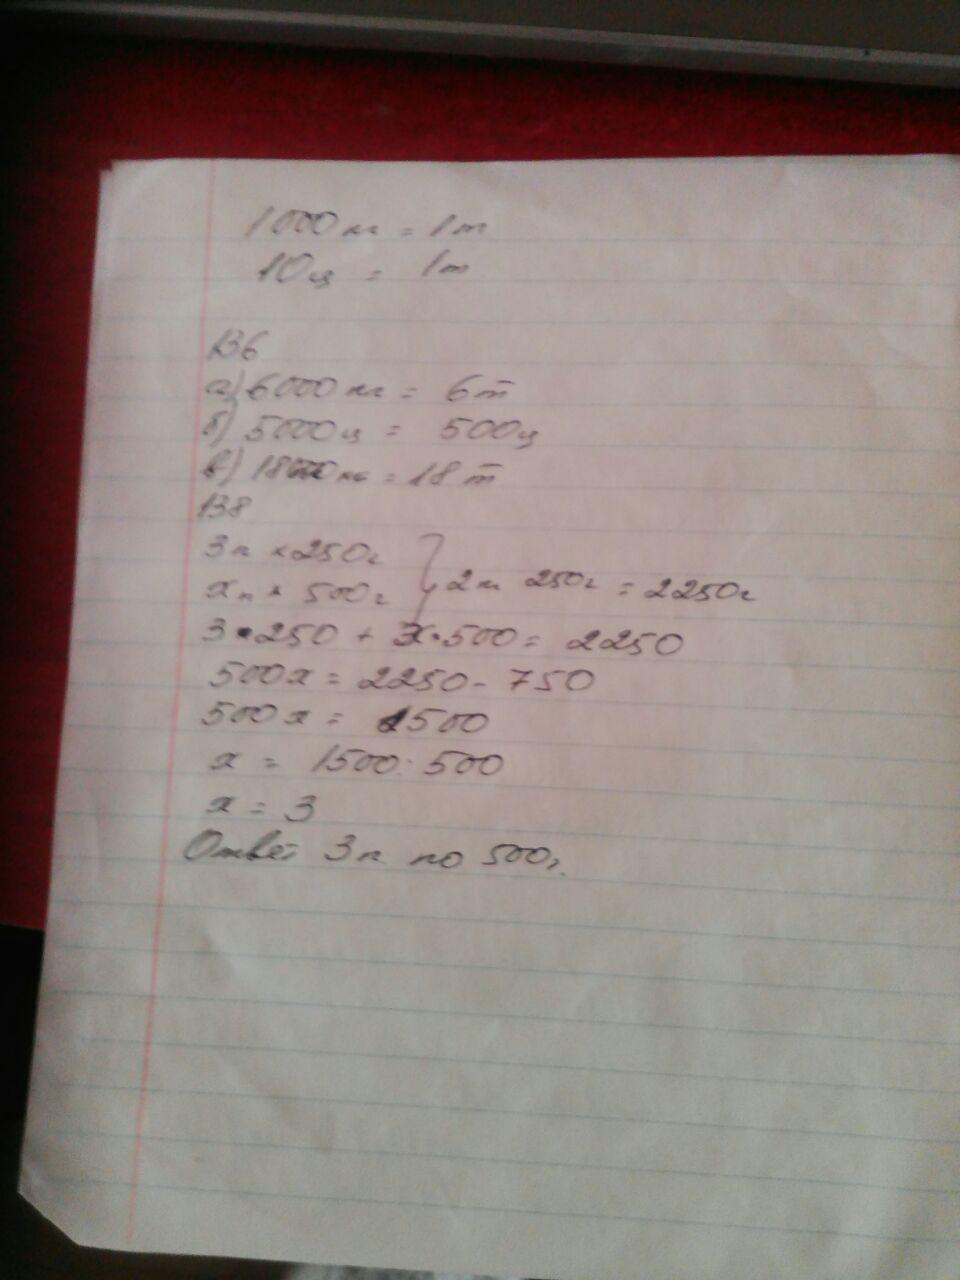 1000 кг = 1 т
10 ц = 1 т
136
а) 6000 кг = 6 т
б) 5000 ц = 500 ц
в) 18000 кг = 18 т
138
3 п × 250 г
x п × 500 г } 2 кг 250 г = 2250 г
3 • 250 + x • 500 = 2250
500x = 2250 - 750
500x = 1500
x = 1500 : 500
x = 3
Ответ 3 п. по 500 г.